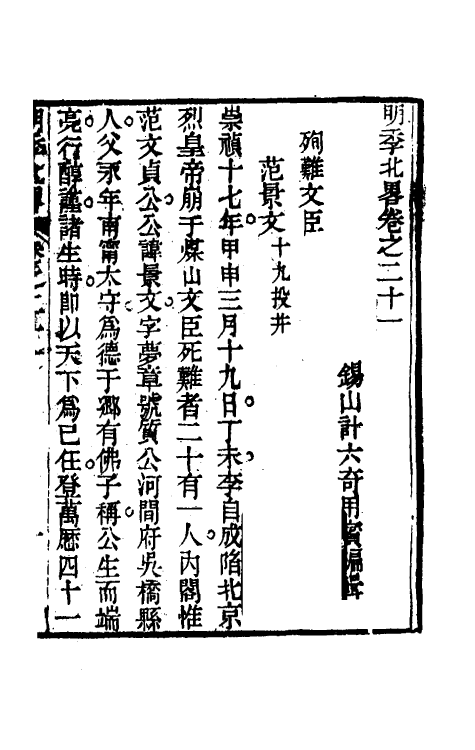 明季北畧卷之二十一
錫山計六奇用賓編輯
殉難文臣
范景文十九投井
崇禎十七年甲申三月十九日丁未李自成陷北京
烈皇帝崩于煤山文臣死難者二十有一人內閣惟
范文貞公公諱景文字夢章號質公河間府吳橋縣
人父永年南甯太守為德于鄉有佛子稱公生而端
亮行醇謹諸生時即以天下為已任登萬曆四十一
明季北畧